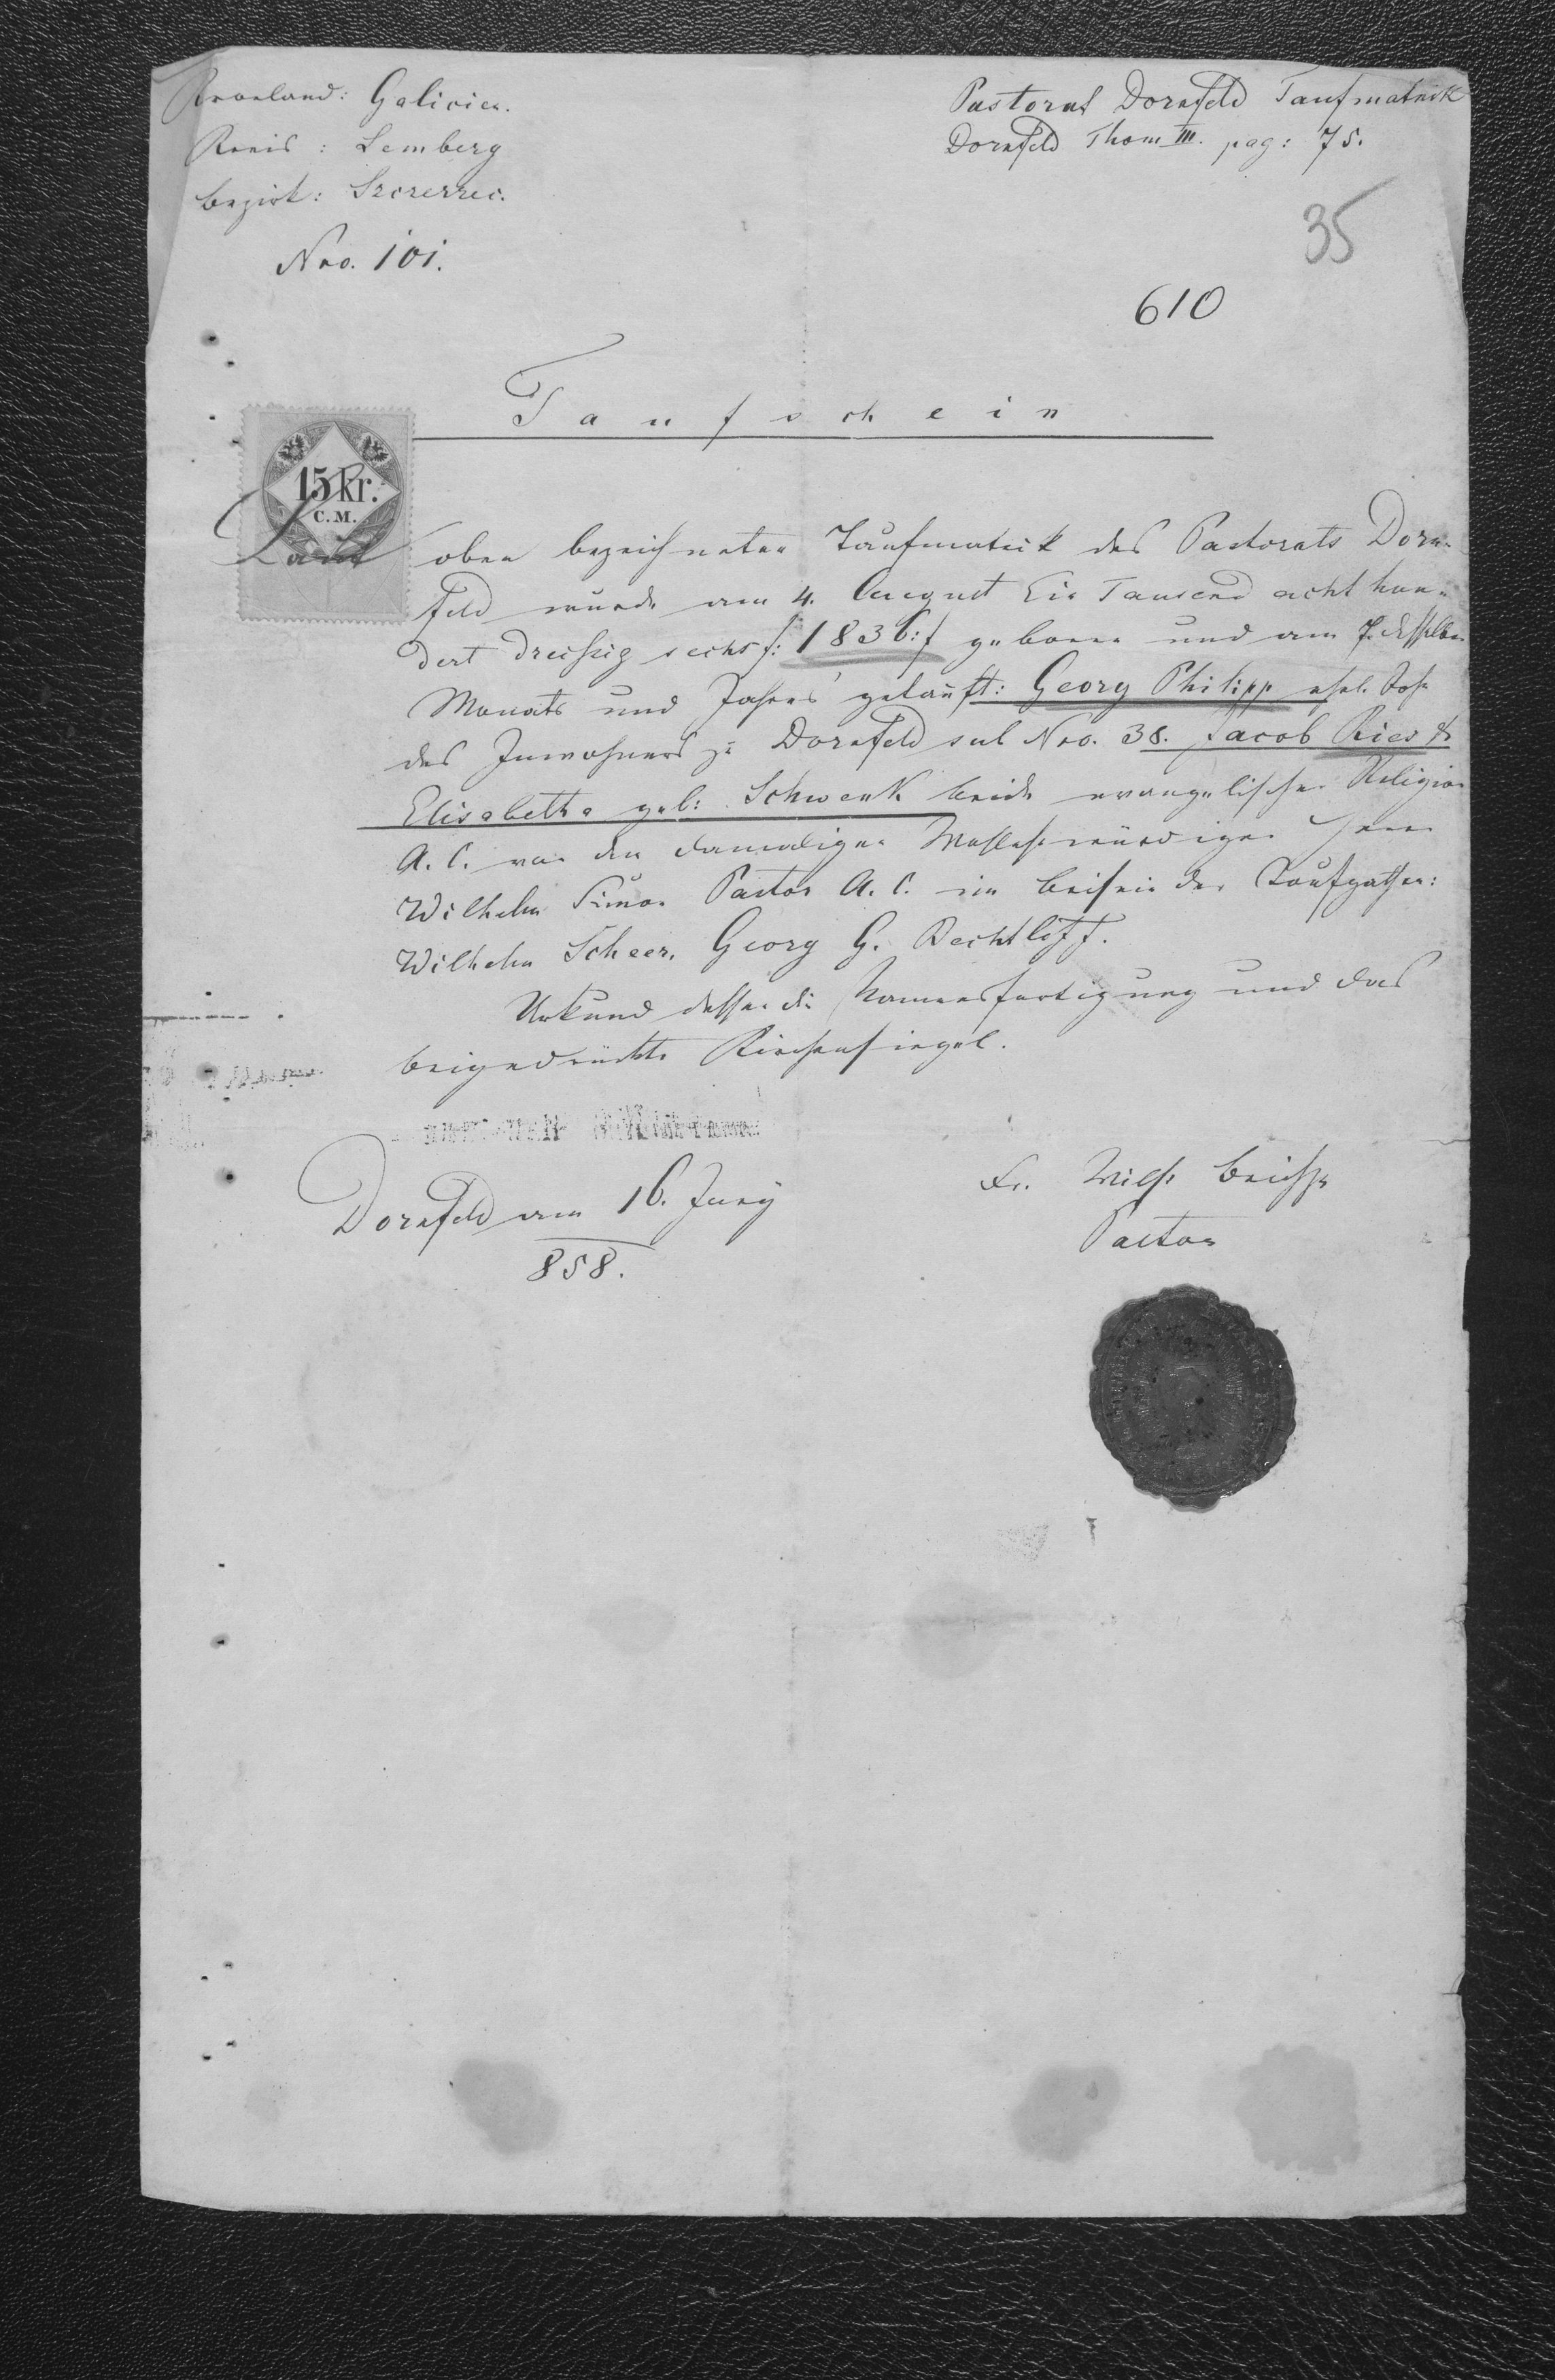 Kronland: Galicien.
Kreis: Lemberg
Bezirk: Szczerzec.
Nro. 101.
Pastorat Dornfeld Taufmatrik
Dornfeld Thom III. pag: 75.
35
610
Taufschein
15 kr.
C.M.
Laut oben bezeichneter Taufmatrik des Pastorats Dorn-
feld wurde am 4. August Ein Tausend acht hun-
dert dreißig sechs /: 1836 :/ geboren und am 7. desselben
Monats und Jahres getauft: Georg Philipp ehel. Sohn
des Inwohners zu Dornfeld sub Nro. 38. Jacob Ries &
Elisabetha geb: Schwenk beide evangelischer Religion
A. C. von dem damaligen Herrn
Wilhelm Simon Pastor A. C. im Beisein der Taufpathen:
Wilhelm Scheer, Georg G. Bechtloff.
Urkund dessen die Namensfertigung und das
beigedrückte Kirchensiegel.
Dornfeld am 16. Juny
858.
Fr. Wilh.
Pastor